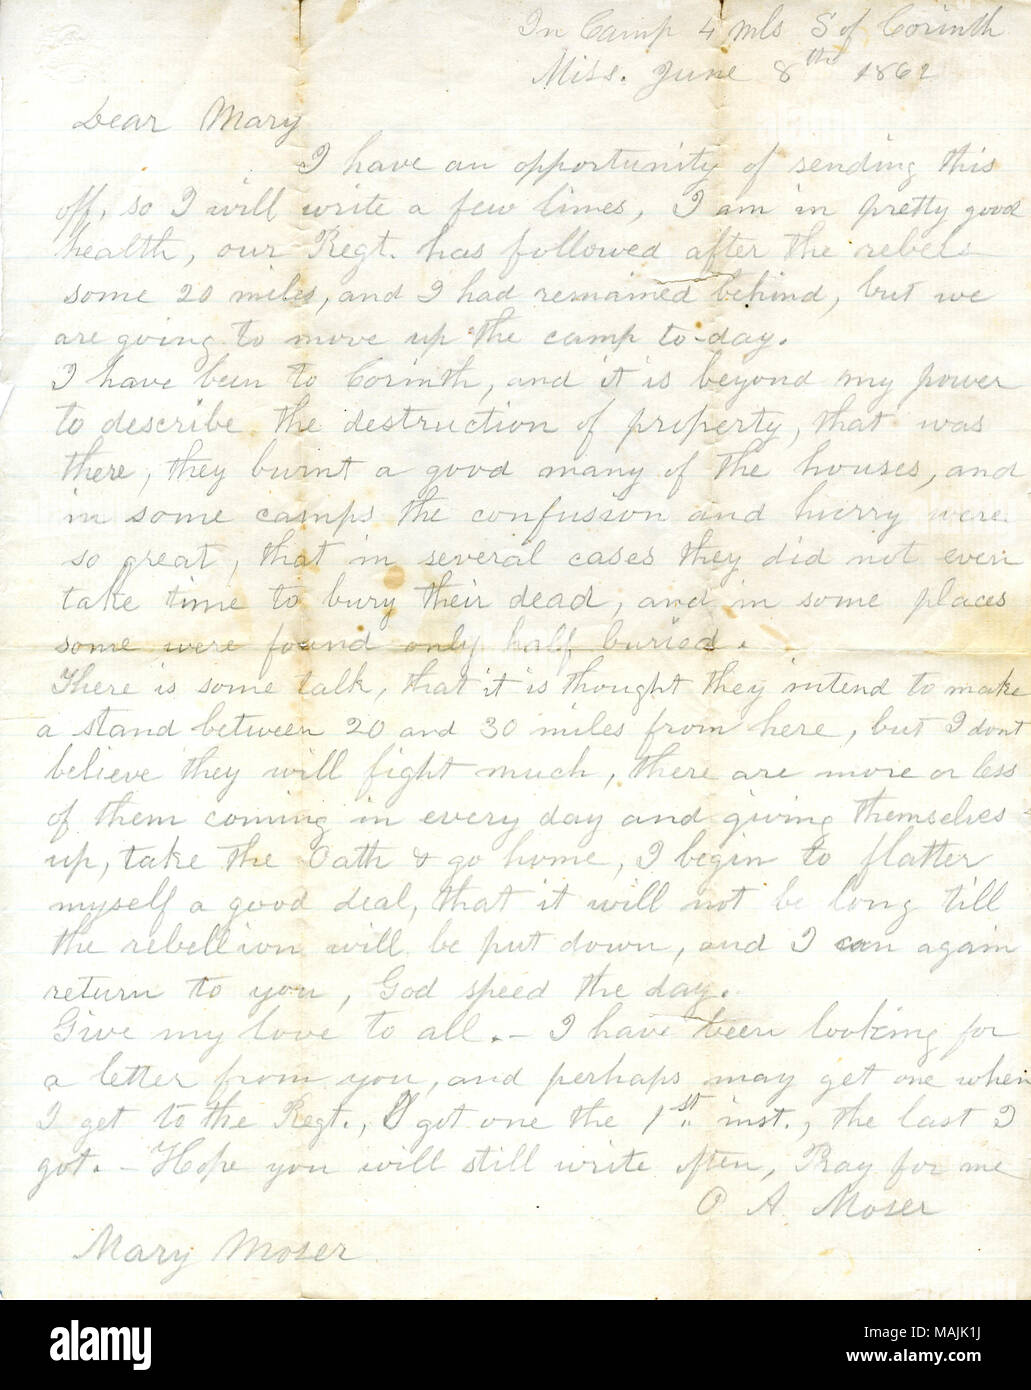 In Camp 4 mls S of Corinth
Miss. June 8th 1862
Dear Mary
I have an opportunity of sending this
off, so I will write a few lines, I am in pretty good
health, our Regt. has followed after the rebels
some 20 miles, and I had remained behind, but we
are going to move up the camp to-day.
I have been to Corinth, and it is beyond my power
to describe the destruction of property, that was
there, they burnt a good many of the houses, and
in some camps the confusion and hurry were
so great, that in several cases they did not even
take time to bury their dead, and in some places
some were found only half buried.
There is some talk, that it is thought they intend to make
a stand between 20 and 30 miles from here, but I dont
believe they will fight much, there are more or less
of them coming in every day and giving themselves
up, take the Oath & go home, I begin to flatter
myself a good deal, that it will not be long till
the rebellion will be put down, and I can again
return to you, God speed the day.
Give my love to all. - I have been looking for
a letter from you, and perhaps may get one when
I get to the Regt., I got one the 1st inst., the last I
got. - Hope you will still write often, Pray for me
O A Moser
Mary Moser
alamy
Image ID: MAJK1J
www.alamy.com